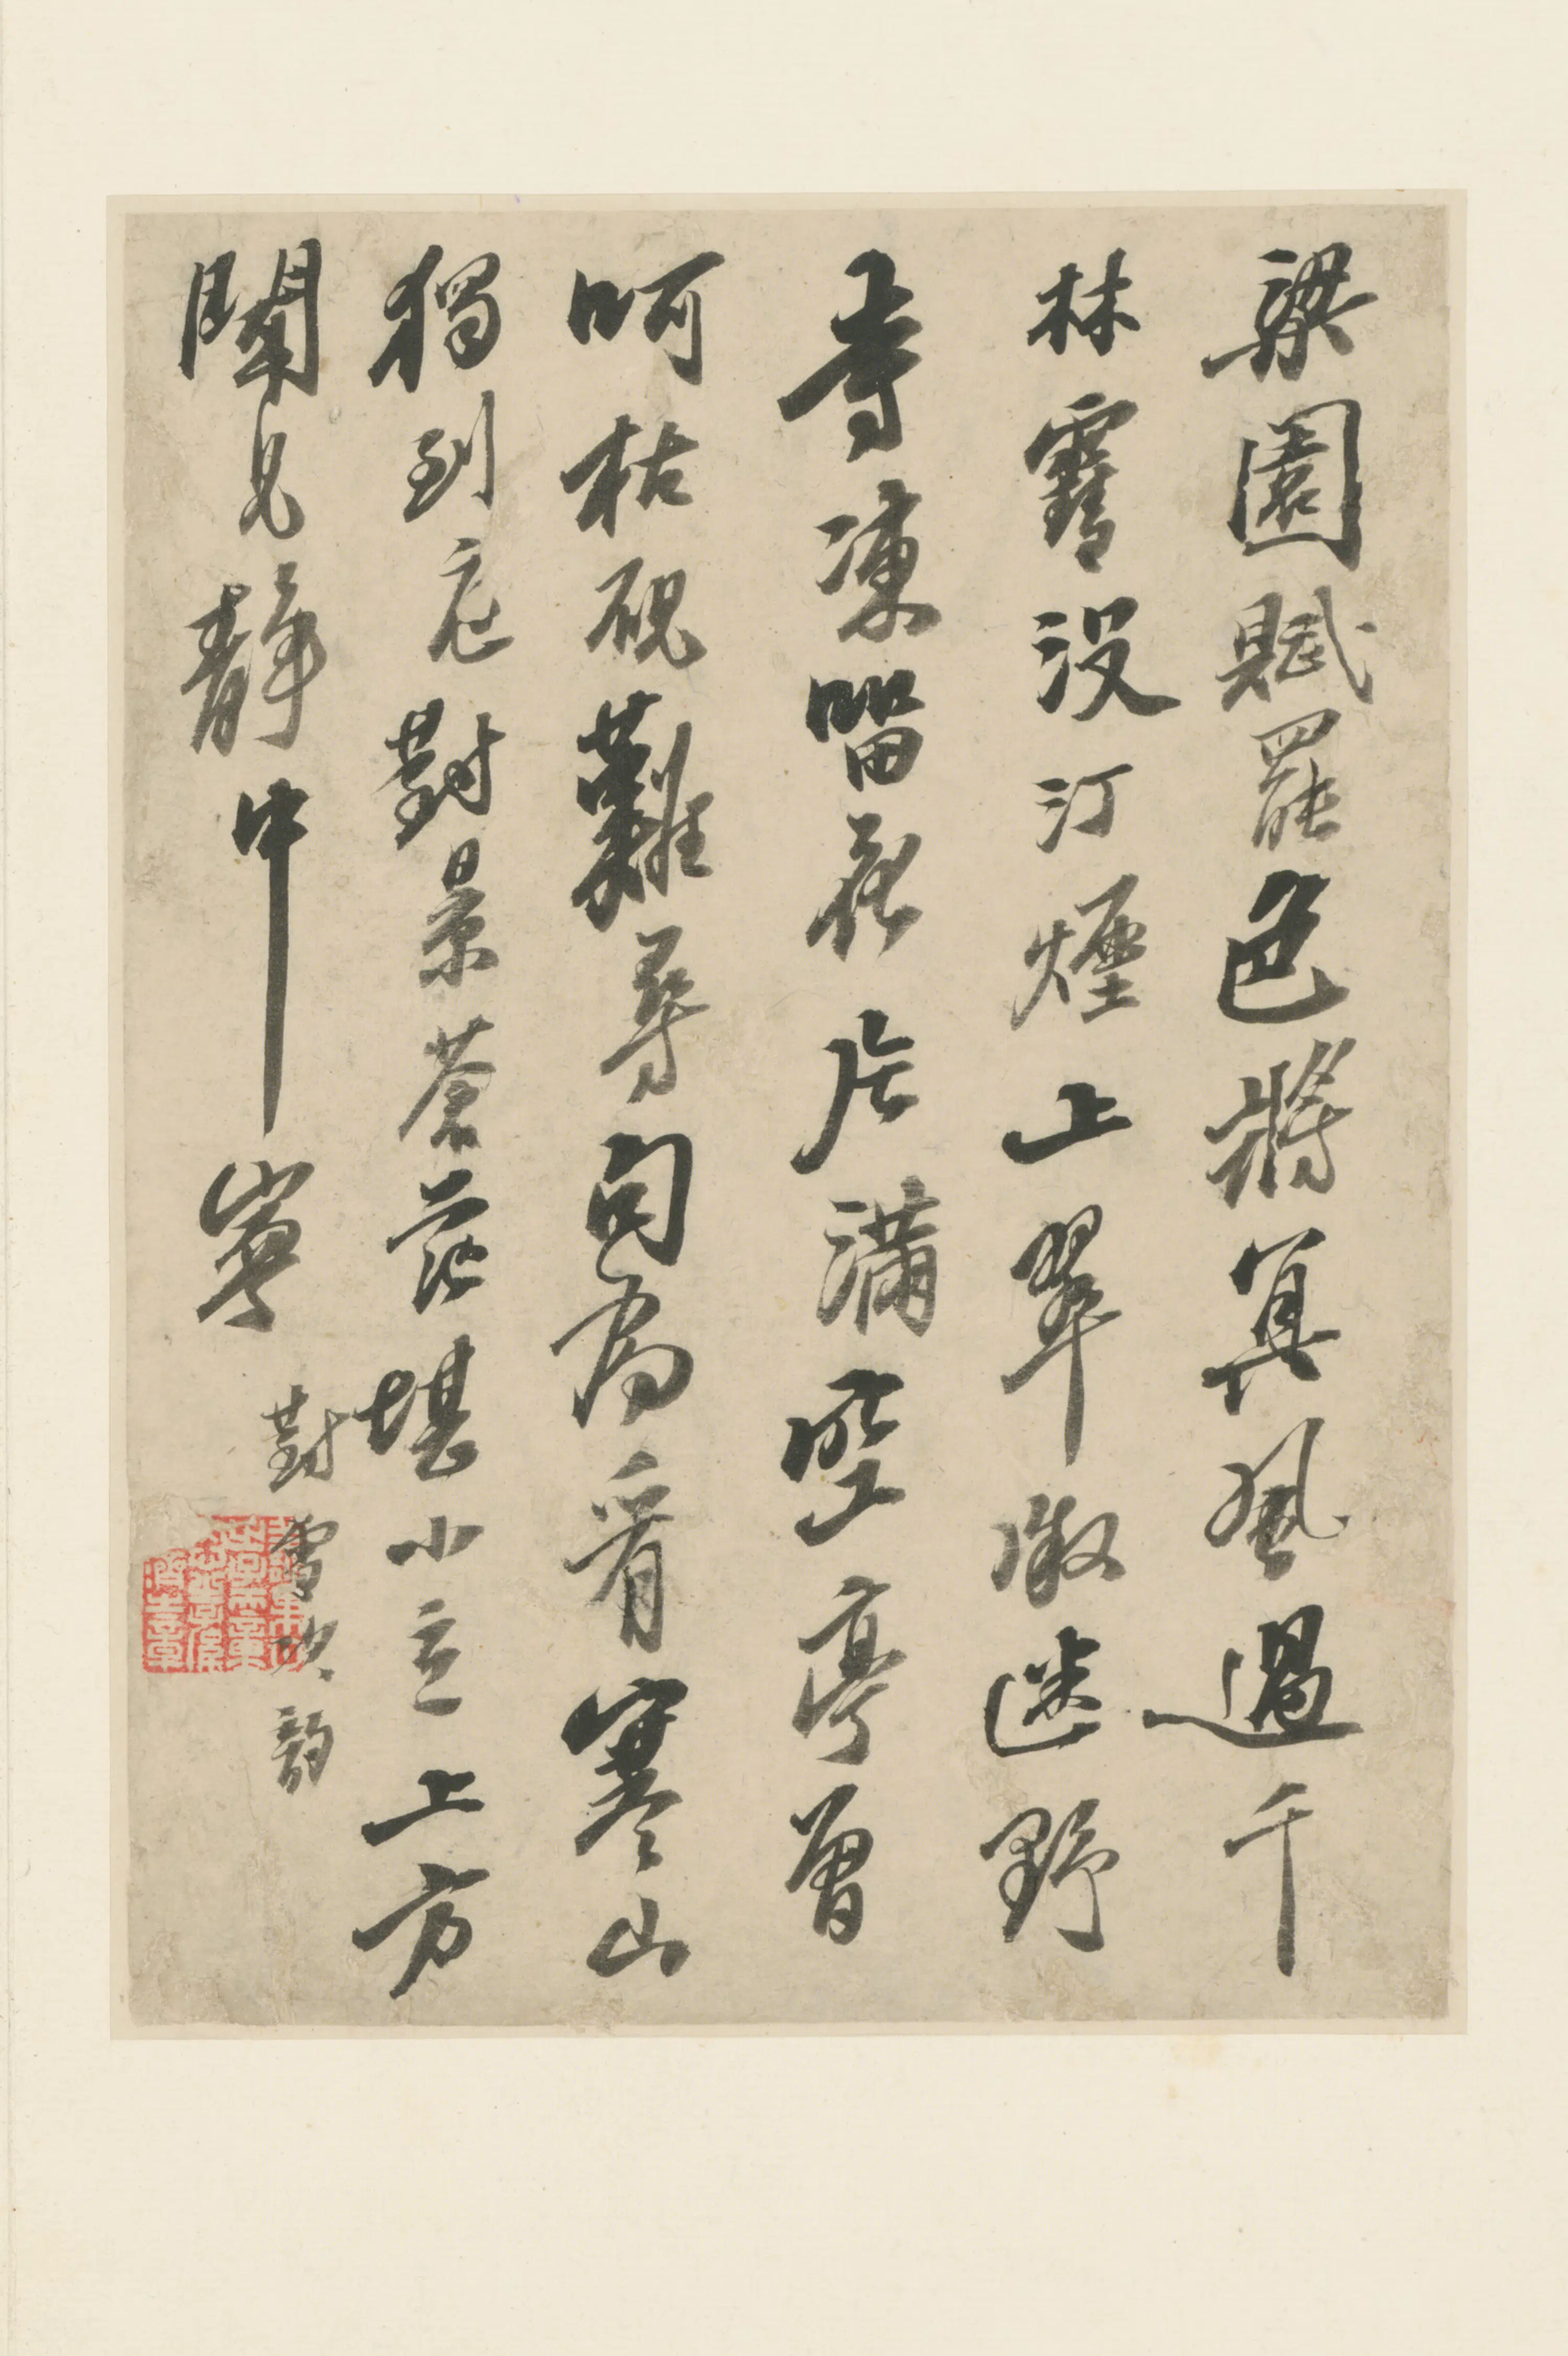 梁園賦罷色將冥風過千
林雪没汀煙上翠微迷野
寺凍留飛片滿空亭曾
呵枯硯難尋句為看寒山
獨到庭對景蒼茫堪小立上方
見靜中寧
對雪次韵